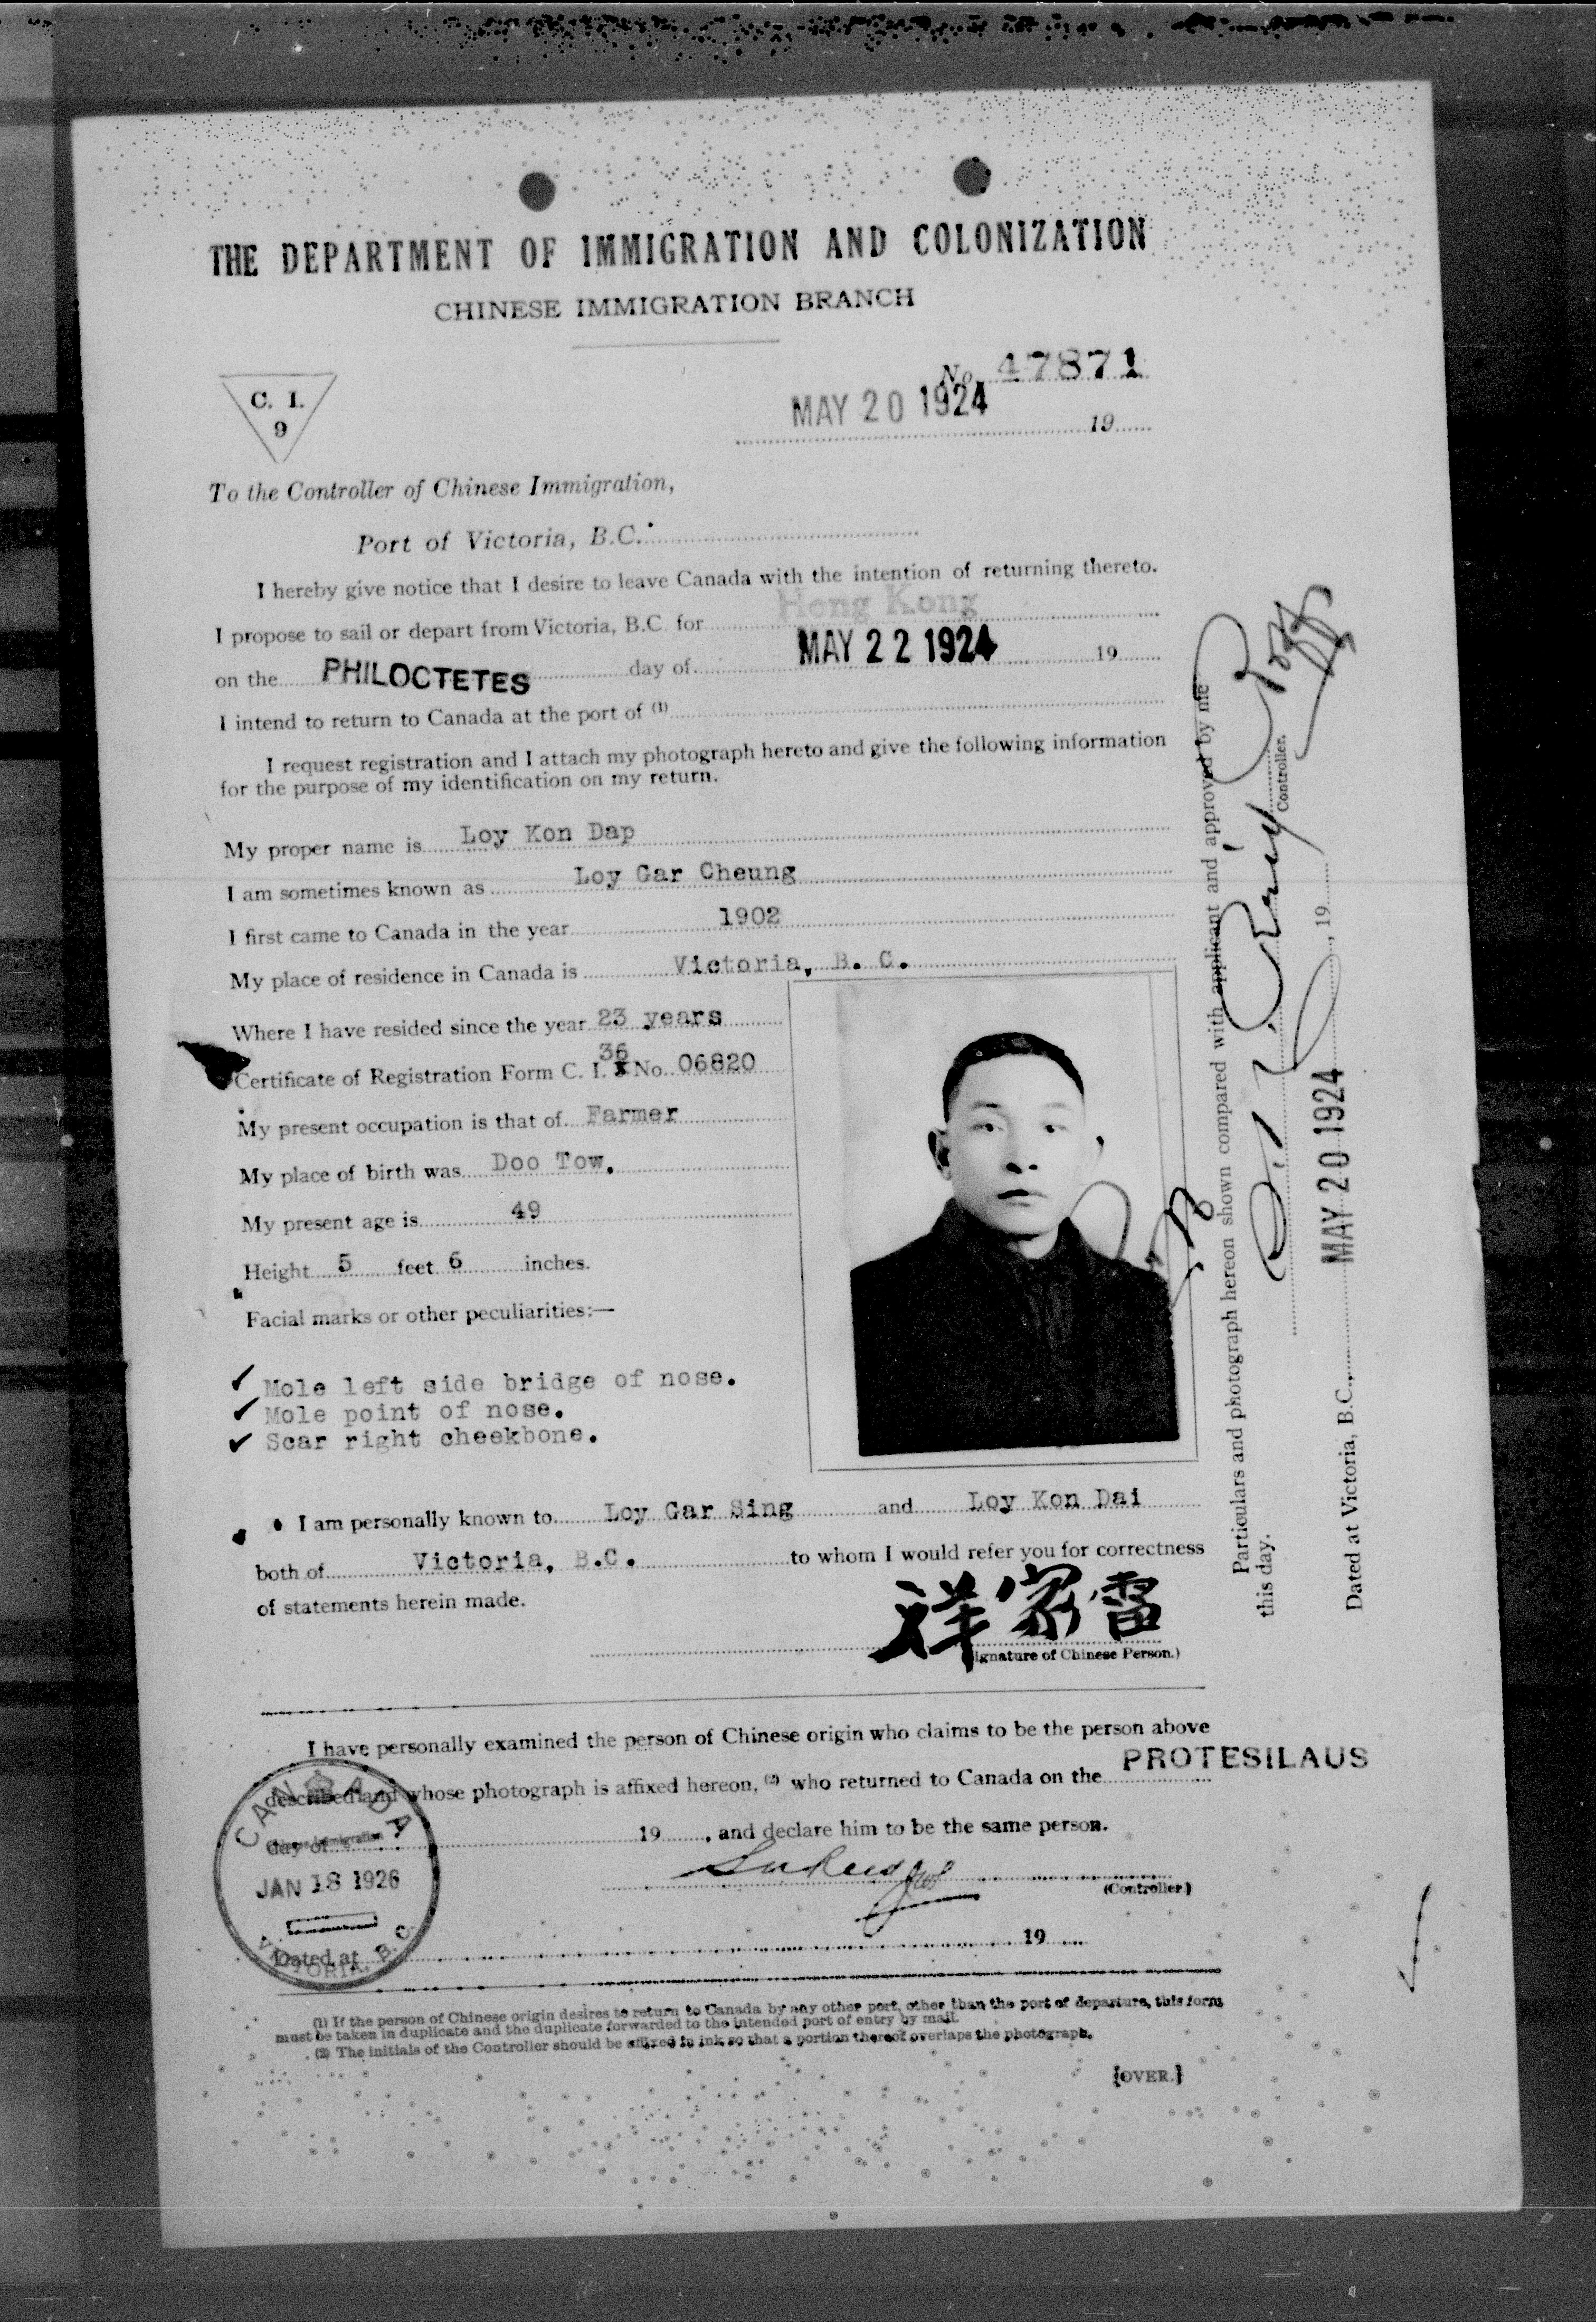 THE DEPARTMENT OF IMMIGRATION AND COLONIZATION
CHINESE IMMIGRATION BRANCH
C. I.
9
No. 47871
MAY 20 1924 19
To the Controller of Chinese Immigration,
Port of Victoria, B.C.
I hereby give notice that I desire to leave Canada with the intention of returning thereto.
I propose to sail or depart from Victoria, B.C. for Hong Kong
on the PHILOCTETES day of MAY 22 1924 19
I intend to return to Canada at the port of (1)
I request registration and I attach my photograph hereto and give the following information
for the purpose of my identification on my return.
My proper name is Loy Kon Dap
I am sometimes known as Loy Gar Cheung
I first came to Canada in the year 1902
My place of residence in Canada is Victoria, B. C.
Where I have resided since the year 23 years
36
Certificate of Registration Form C. I. No. 06820
My present occupation is that of Farmer
My place of birth was Doo Tow.
My present age is 49
Height 5 feet 6 inches.
Facial marks or other peculiarities:—
Mole left side bridge of nose.
Mole point of nose.
Scar right cheekbone.
I am personally known to Loy Gar Sing and Loy Kon Dai
both of Victoria, B.C. to whom I would refer you for correctness
of statements herein made.
祥家雷
ignature of Chinese Person.)
Particulars and photograph hereon shown compared with applicant and approved by me
this day.
Controller.
Dated at Victoria, B.C., MAY 20 1924, 19
I have personally examined the person of Chinese origin who claims to be the person above
described and whose photograph is affixed hereon, (2) who returned to Canada on the PROTESILAUS
day of 19, and declare him to be the same person.
(Controller)
Dated at 19
CANADA
Chinese Immigration
JAN 18 1926
VICTORIA, B.C.
(1) If the person of Chinese origin desires to return to Canada by any other port, other than the port of departure, this form
must be taken in duplicate and the duplicate forwarded to the intended port of entry by mail.
(2) The initials of the Controller should be affixed in ink so that a portion thereof overlaps the photograph.
[OVER.]